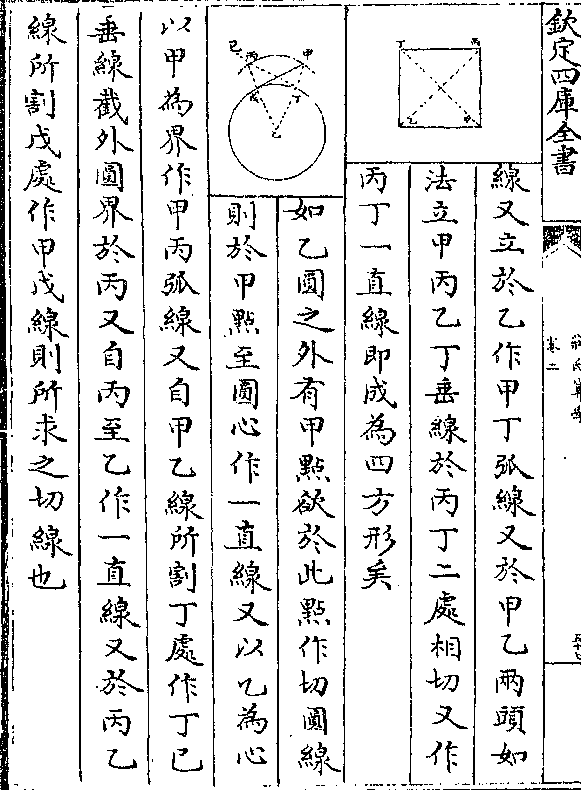 欽定四庫全書
莊氏算學
卷二
線又立於乙作甲丁弧線又於甲乙兩頭如
法立甲丙乙丁垂線於丙丁二處相切又作
丙丁一直線即成為四方形矣
如乙圓之外有甲點欲於此點作切圓線
則於甲點至圓心作一直線又以乙為心
以甲為界作甲丙弧線又自甲乙線所割丁處作丁已
垂線截外圓界於丙又自丙至乙作一直線又於丙乙
線所割戊處作甲戊線則所求之切線也
丁 丙
乙 甲
已 丙 甲
戊 丁
乙